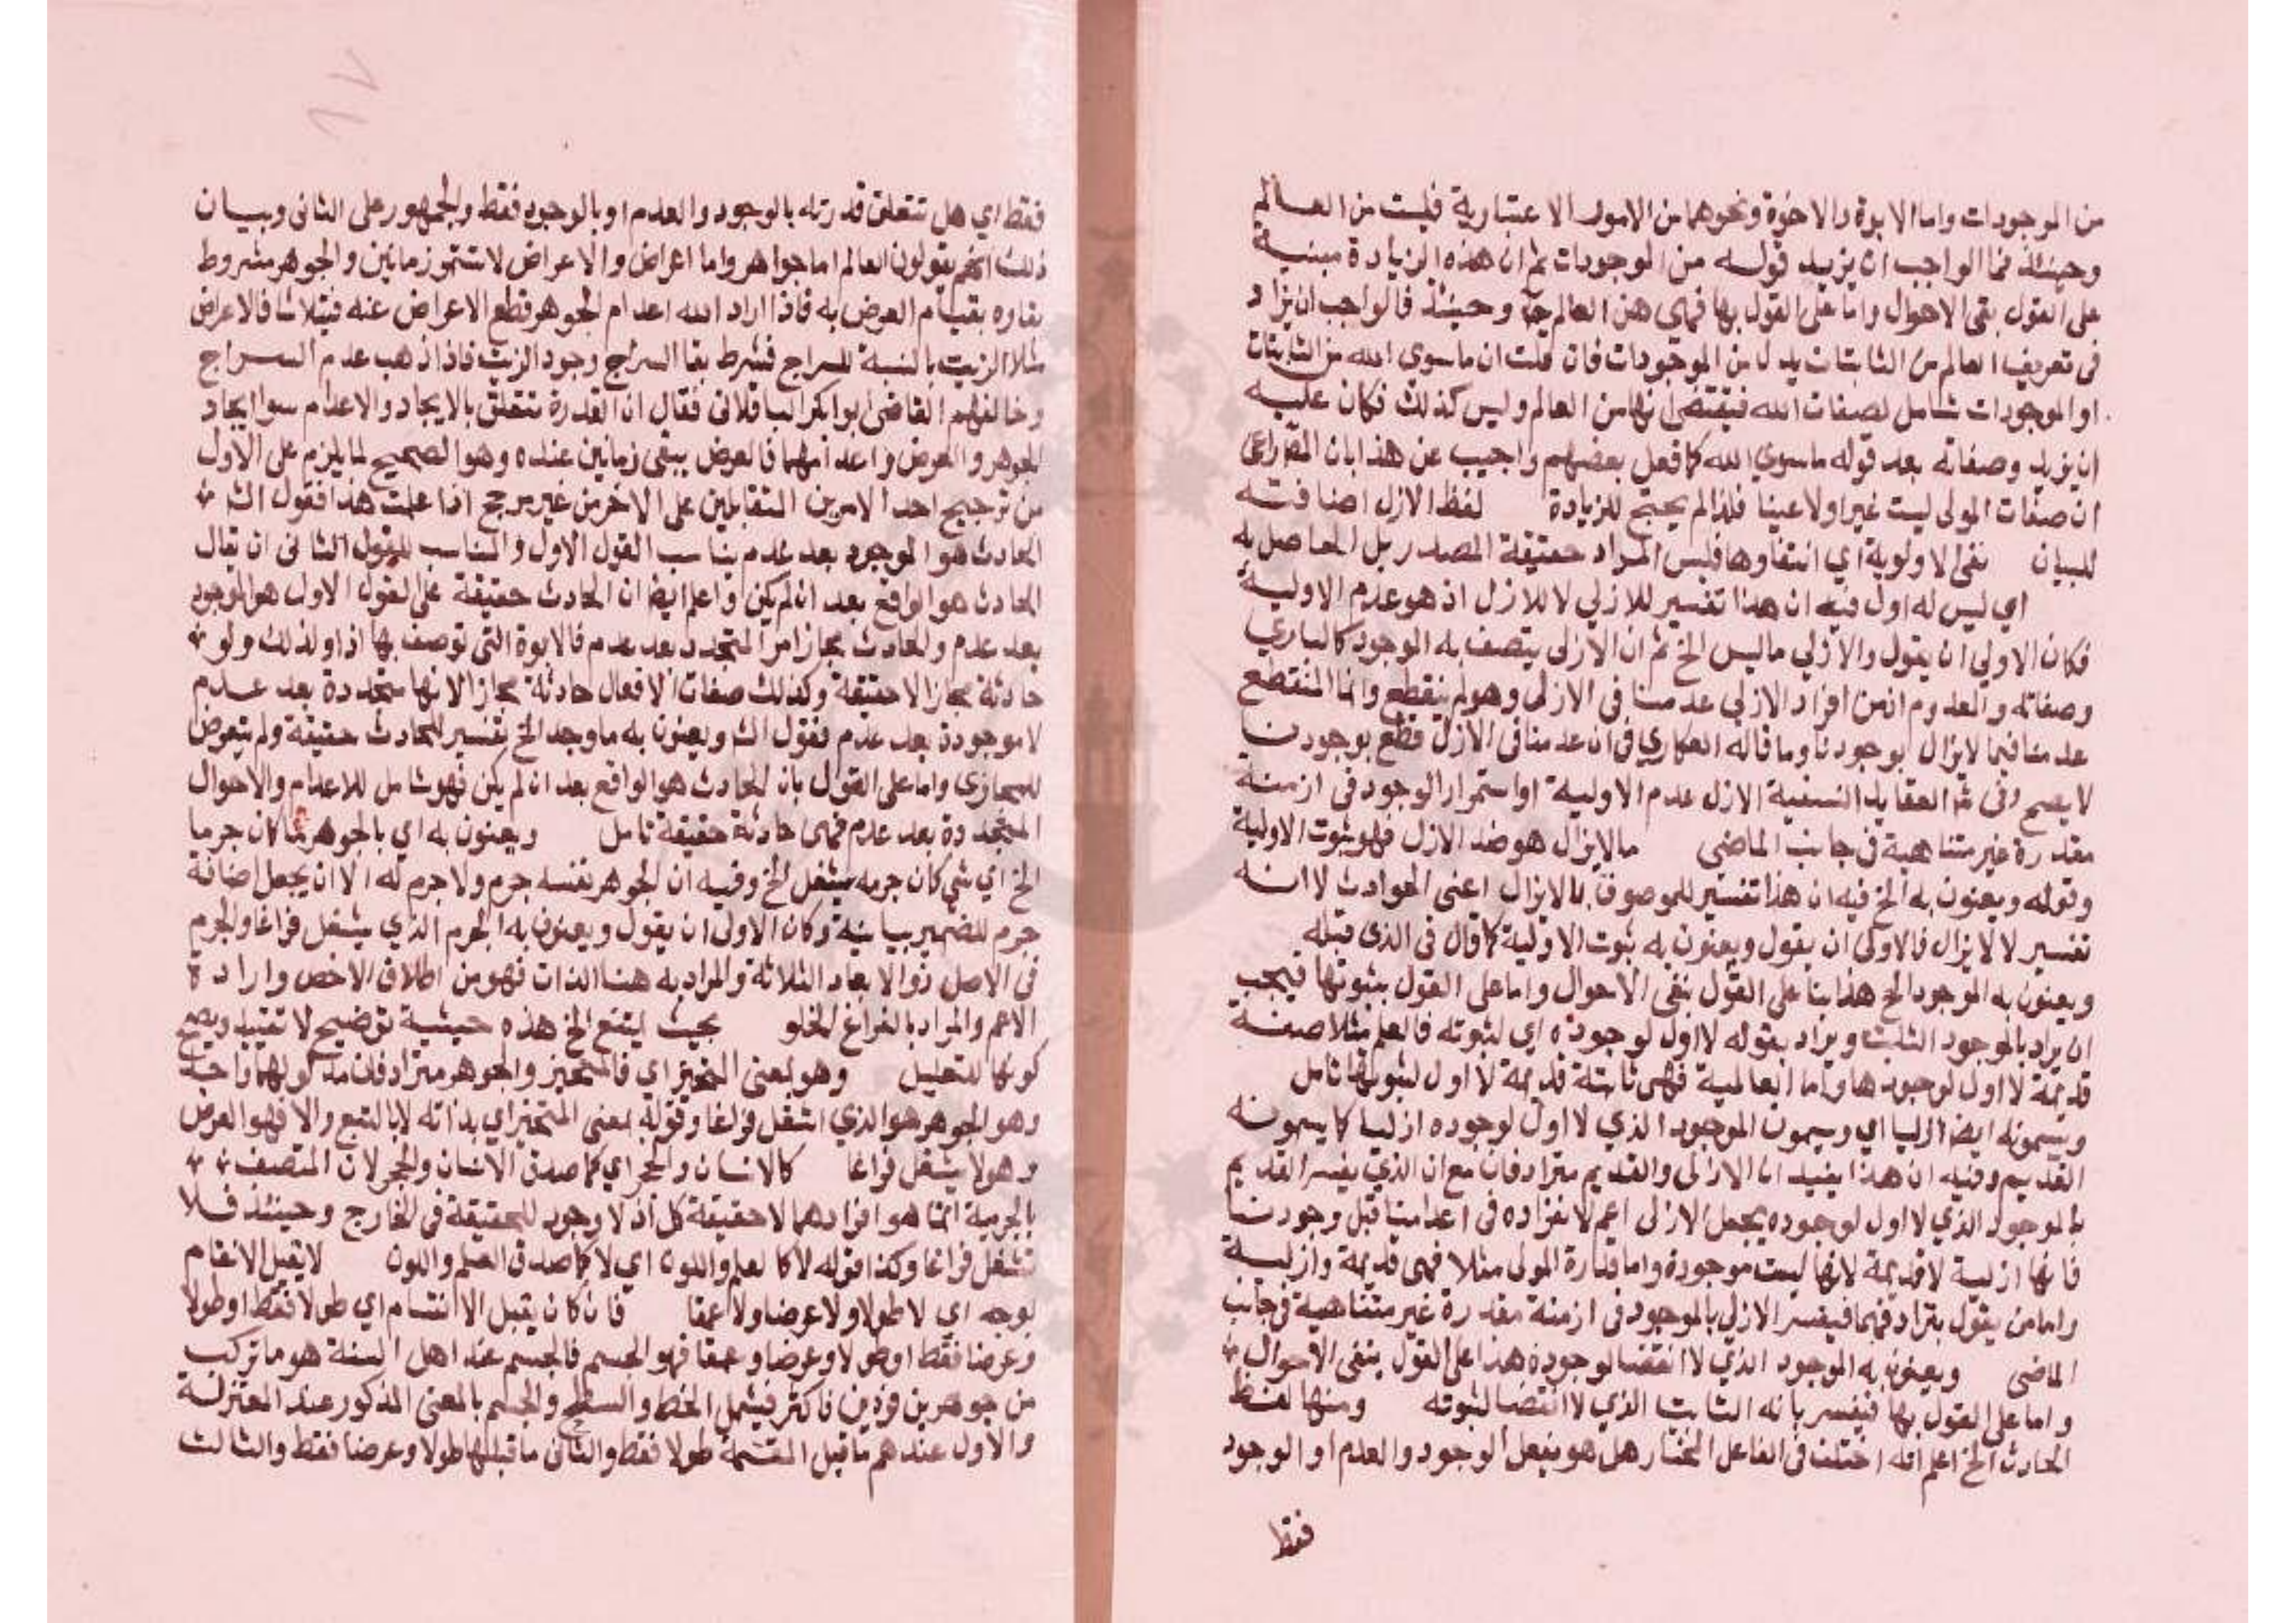 من الموجودات واما الابوة والاخوة ونحوهما من الامور الاعتبارية فليست من العالم
وحينئذ فما الواجب ان يزيد قوله من الموجودات ثم ان هذه الزيادة مبنية
على القول بنفي الاحوال واما على القول بها فهي من العالم وحينئذ فالواجب ان يزاد
في تعريف العالم من الثابتات بدلا من الموجودات فان قلت ان ماسوى الله من الثابتات
او الموجودات شامل لصفات الله فيقتضي انها من العالم وليس كذلك فكان عليه
ان يزيد وصفاته بعد قوله ماسوى الله كما فعل بعضهم واجيب عن هذا بان
ان صفات المولى ليست غيرا ولاعينا فلذا لم يحتج للزيادة لفظ الازل اضافته
للبيان نفي الاولوية اي انتفاوها فليس المراد حقيقة المصدر بل الحاصل به
اي ليس له اول فيه ان هذا تفسير للازلي لا للازل اذ هو عدم الاولية
فكان الاولي ان يقول والازلي ماليس الخ ثم ان الازلي يتصف به الوجود كالباري
وصفاته والمعدوم اذ من افراد الازلي عدمنا في الازل وهو لم ينقطع وانما المنقطع
عدمنا فيما لايزال بوجودنا وما قاله العكاري في ان عدمنا في الازل قطع بوجودنا
لا يصح وفي شر العقايد النسفية الازل عدم الاولية او استمرار الوجود في ازمنة
مقدرة غير متناهية في جانب الماضي مالايزال هو ضد الازل فهو ثبوت الاولية
وقوله ويعنون به الخ فيه ان هذا تفسير للموصوف بالايزال اعني الحوادث لا انه
تفسير لالايزال فالاولى ان يقول ويعنون به ثبوت الاولية كما قال في الذي قبله
ويعنون به الموجود الخ هذا بنا على القول بنفي الاحوال واما على القول بثبوتها فيجب
ان يراد بالموجود الثابت ويراد بقوله لا اول لوجوده اي لثبوته فالعلم مثلا صفة
قديمة لا اول لوجودها واما العالمية فهي ثابتة قديمة لا اول لثبوتها تامل
ويسمونه ايضا ازليا اي ويسمون الموجود الذي لا اول لوجوده ازليا كما يسمونه
القديم وفيه ان هذا يفيد ان الازلي والقديم مترادفان مع ان الذي يفسر القديم
بالموجود الذي لا اول لوجوده يجعل الازلي اعم لانفراده في اعدامنا قبل وجودنا
فانها ازلية لا قديمة لانها ليست موجودة واما قدرة المولى مثلا فهي قديمة وازلية
واما من يقول بترادفهما فيفسر الازلي بالموجود في ازمنة مقدرة غير متناهية في جانب
الماضي ويعنون به الموجود الذي لا انقضا لوجوده هذا على القول بنفي الاحوال
واما على القول بها فيفسر بانه الثابت الذي لا انقضا لثبوته ومنها لفظ
الحادث الخ اعلم انه اختلف في الفاعل المختار هل هو يفعل الوجود والعدم او الوجود
فقط
١٧
فقط اي هل تتعلق قدرته بالوجود والعدم او بالوجود فقط والجمهور على الثاني وبيان
ذلك انهم يقولون العالم اما جواهر واما اعراض والاعراض لا تستمر زمانين والجوهر مشروط
بقاوه بقيام العرض به فاذا اراد الله اعدام الجوهر قطع الاعراض عنه فيتلاشا فالاعراض
مثلا الزيت بالنسبة للسراج فشرط بقا السراج وجود الزيت فاذا ذهب عدم السراج
وخالفهم القاضي ابو بكر الباقلاني فقال ان القدرة تتعلق بالايجاد والاعدام سوا ايجاد
الجوهر والعرض واعدامهما فالعرض يبقى زمانين عنده وهو الصحيح لما يلزم على الاول
من ترجيح احد الامرين المتقابلين على الاخر من غير مرجح اذا علمت هذا فقول الش
الحادث هو الموجود بعد عدم يناسب القول الاول والمناسب للقول الثاني ان يقال
الحادث هو الواقع بعد ان لم يكن واعلم ايضا ان الحادث حقيقة على القول الاول هو الموجود
بعد عدم والحادث مجازا مرا المتجدد بعد عدم فالابوة التي توصف بها اذا ولد لك ولد
حادثة مجازا لا حقيقة وكذلك صفات الافعال حادثة مجازا لانها متجددة بعد عدم
لا موجودة بعد عدم فقول الش ويعنون به ما وجد الخ تفسير للحادث حقيقة ولم يتعرض
للمجازي واما على القول بان الحادث هو الواقع بعد ان لم يكن فهو شامل للاعدام والاحوال
المتجددة بعد عدم فهي حادثة حقيقة تامل ويعنون به اي بالجوهر ما كان جرما
الخ اي شي كان جرمه يشغل الخ وفيه ان الجوهر نفسه جرم ولا جرم له الا ان يجعل اضافة
جرم للضمير بيانية وكان الاولى ان يقول ويعنون به الجرم الذي يشغل فراغا والجرم
في الاصل ذو الابعاد الثلاثة والمراد به هنا الذات فهو من اطلاق الاخص وارادة
الاعم والمراد بالفراغ الخلو بحيث يمتنع الخ هذه حيثية توضيح لا تقييد ويصح
كونها للتعليل وهو بمعنى المتحيز اي فالمتحيز والجوهر مترادفان مدلولهما واحد
وهو الجوهر هو الذي اشغل فراغا وقوله بمعنى المتحيز اي بذاته لا بالتبع والا فهو العرض
وهو لا يشغل فراغا كالانسان والحجر اي كما صدق الانسان والحجر لان المتصف
بالجرمية انما هو افرادهما لا حقيقة كل اذ لا وجود للحقيقة في الخارج وحينئذ فلا
تشغل فراغا وكذا قوله لا كالعلم واللون اي لا كما صدق العلم واللون لا يقبل الانقسام
بوجه اي لا طولا ولا عرضا ولا عمقا فان كان يقبل الانقسام اي طولا فقط او طولا
وعرضا فقط او طولا وعرضا وعمقا فهو الجسم فالجسم عند اهل السنة هو ما تركب
من جوهرين فردين فاكثر فيشمل الخط والسطح والجسم بالمعنى المذكور عند المعتزلة
والاول عندهم ما قبل القسمة طولا فقط والثاني ما قبلها طولا وعرضا فقط والثالث